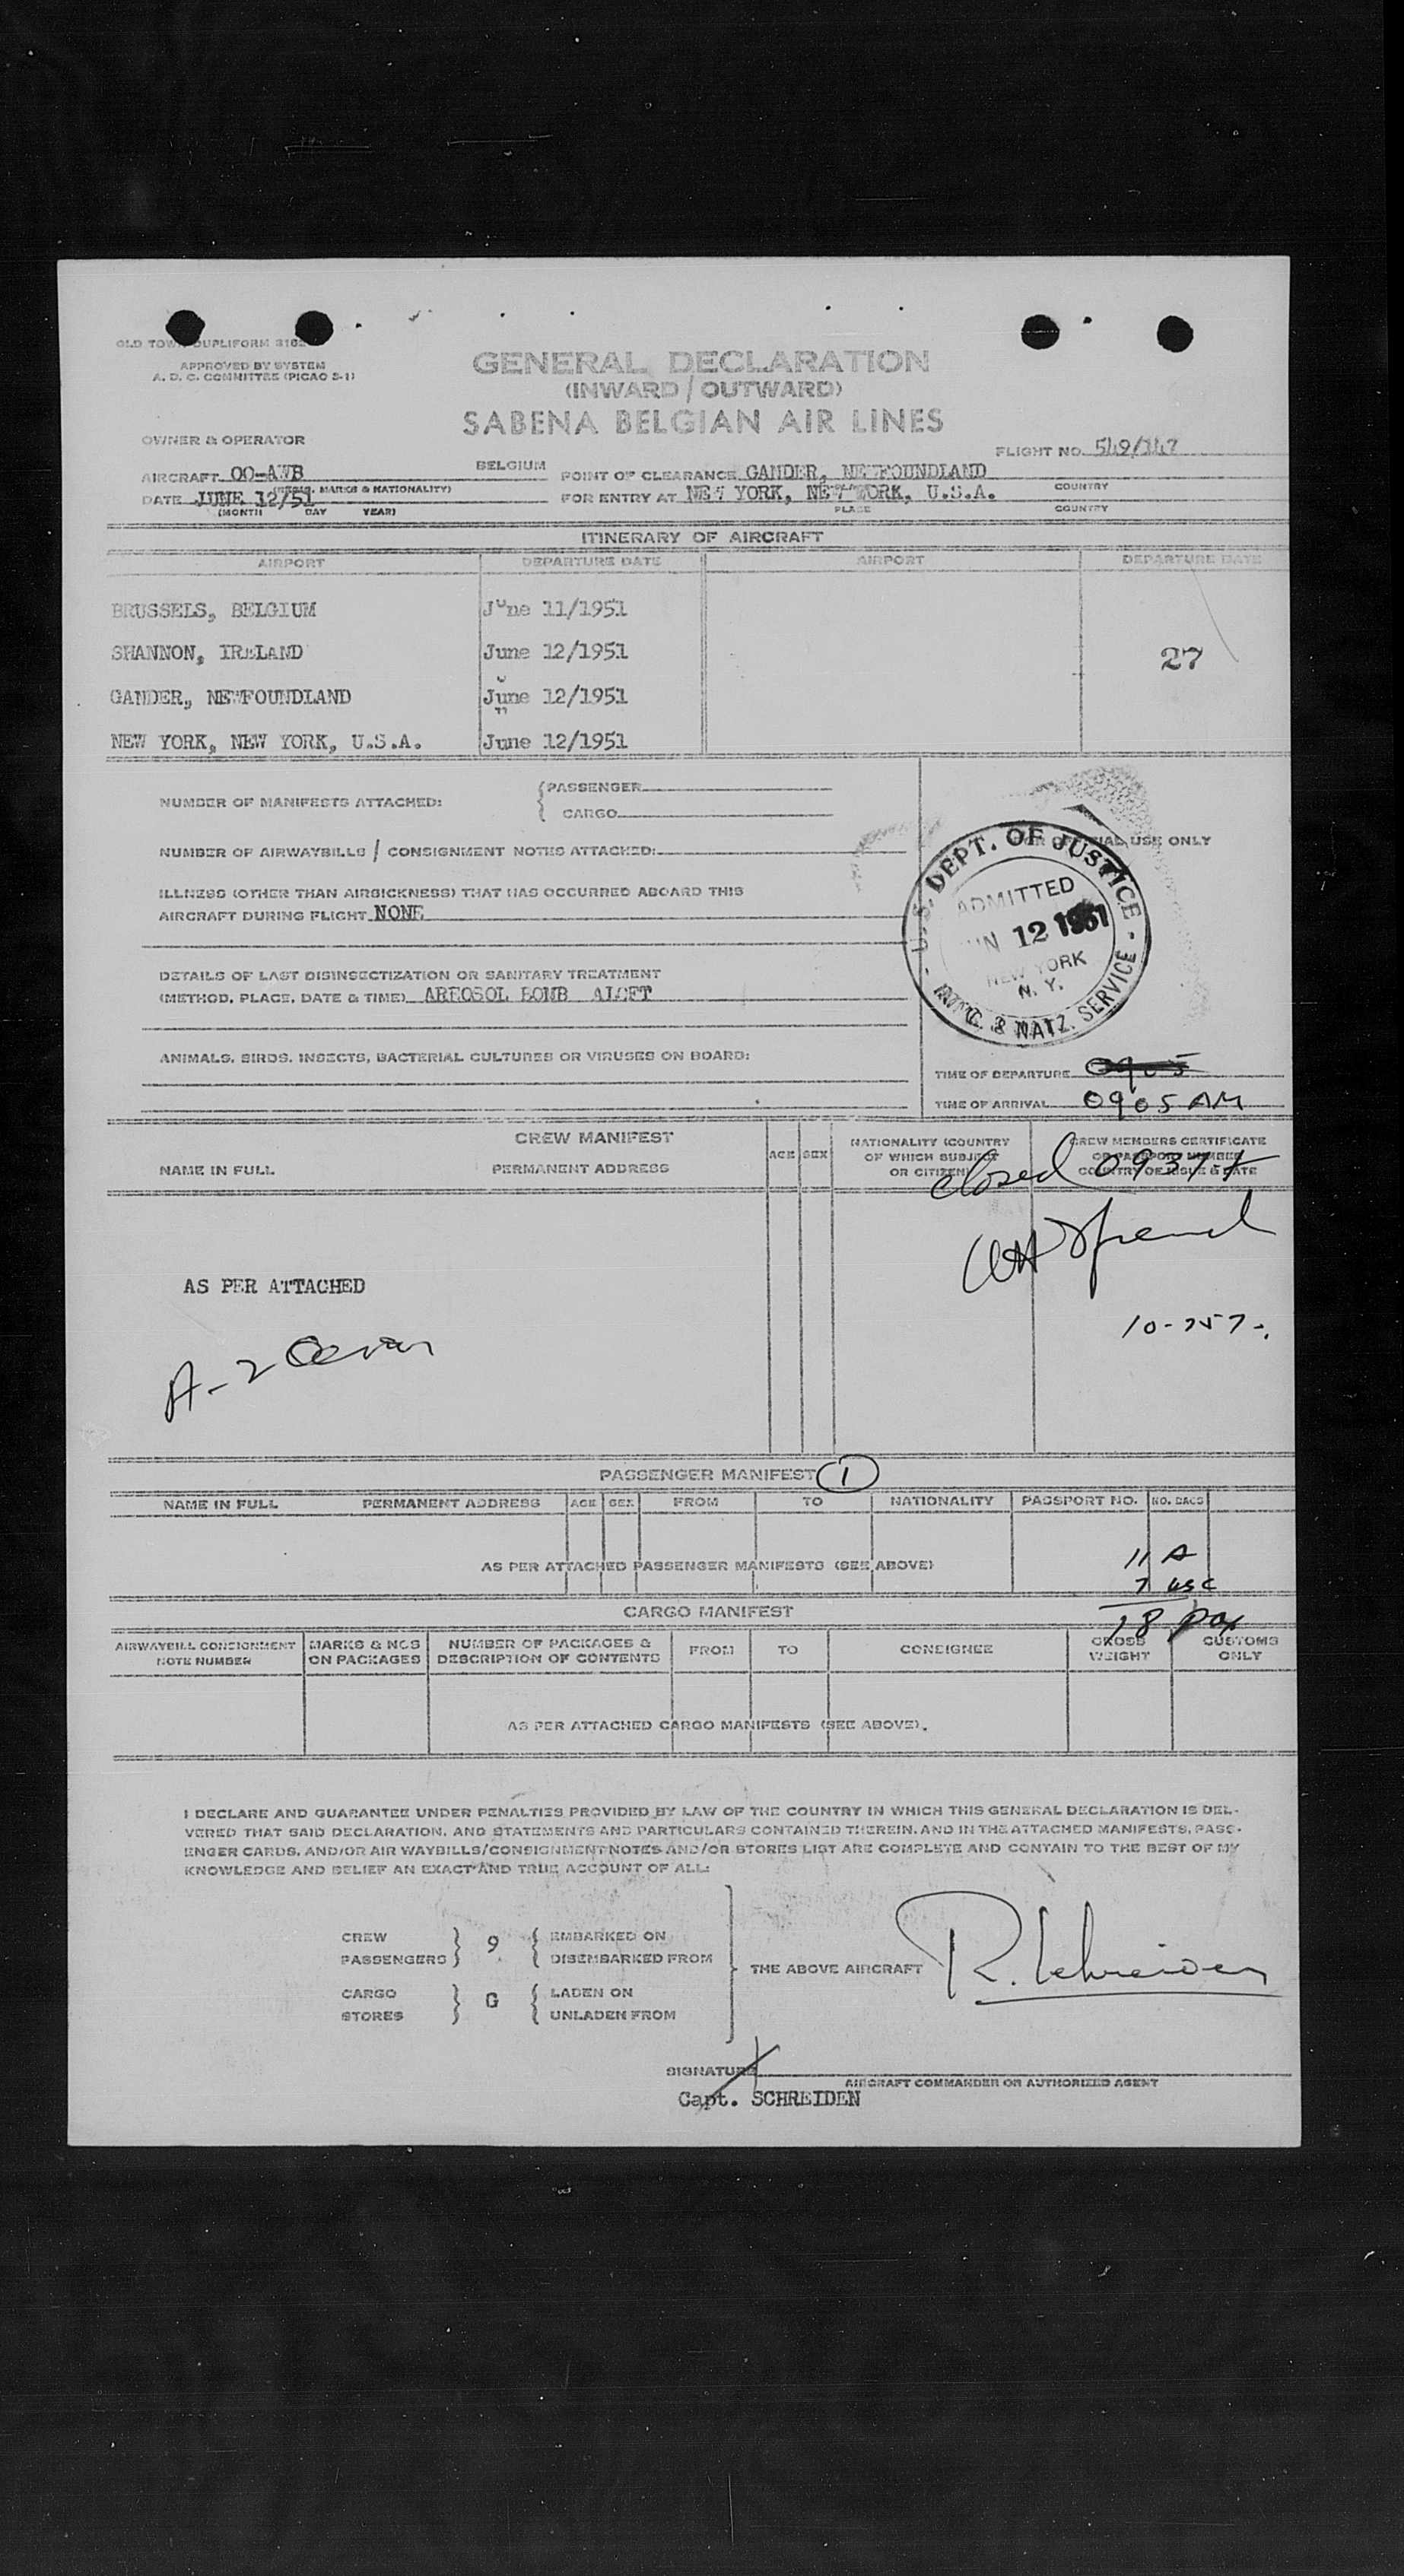 OLD TOWN DUPLIFORM 3162
APPROVED BY SYSTEM
A. D. C. COMMITTEE (PICAO 2-1)
GENERAL DECLARATION
(INWARD / OUTWARD)
SABENA BELGIAN AIR LINES
OWNER & OPERATOR
FLIGHT NO. 549/147
AIRCRAFT OO-AWB BELGIUM
MARKS & NATIONALITY)
POINT OF CLEARANCE GANDER, NEWFOUNDLAND
COUNTRY
DATE JUNE 12/51
(MONTH DAY YEAR)
FOR ENTRY AT NEW YORK, NEW YORK, U.S.A.
PLACE COUNTRY
ITINERARY OF AIRCRAFT
AIRPORT DEPARTURE DATE AIRPORT DEPARTURE DATE
BRUSSELS, BELGIUM June 11/1951
SHANNON, IRELAND June 12/1951
27
GANDER, NEWFOUNDLAND June 12/1951
NEW YORK, NEW YORK, U.S.A. June 12/1951
NUMBER OF MANIFESTS ATTACHED: { PASSENGER
CARGO
NUMBER OF AIRWAYBILLS / CONSIGNMENT NOTES ATTACHED:
USE ONLY
ILLNESS (OTHER THAN AIRSICKNESS) THAT HAS OCCURRED ABOARD THIS
AIRCRAFT DURING FLIGHT NONE
U.S. DEPT. OF JUSTICE
ADMITTED
UN 12 1951
NEW YORK
N. Y.
IMMG. & NATZ. SERVICE
DETAILS OF LAST DISINSECTIZATION OR SANITARY TREATMENT
(METHOD, PLACE, DATE & TIME) AREOSOL BOMB ALOFT
ANIMALS, BIRDS, INSECTS, BACTERIAL CULTURES OR VIRUSES ON BOARD:
TIME OF DEPARTURE 0905
TIME OF ARRIVAL 0905 AM
CREW MANIFEST
NAME IN FULL PERMANENT ADDRESS AGE SEX
NATIONALITY (COUNTRY
OF WHICH SUBJECT
OR CITIZEN)
CREW MEMBERS CERTIFICATE
OR PASSPORT NUMBER
COUNTRY OF ISSUE & DATE
closed 0937
AS PER ATTACHED
10-757
A-2
PASSENGER MANIFEST 1
NAME IN FULL PERMANENT ADDRESS AGE SEX FROM TO NATIONALITY PASSPORT NO. NO. BAGS
AS PER ATTACHED PASSENGER MANIFESTS (SEE ABOVE)
11 A
7 USC
18 pax
CARGO MANIFEST
AIRWAYBILL CONSIGNMENT
NOTE NUMBER
MARKS & NOS
ON PACKAGES
NUMBER OF PACKAGES &
DESCRIPTION OF CONTENTS
FROM TO CONSIGNEE
GROSS
WEIGHT
CUSTOMS
ONLY
AS PER ATTACHED CARGO MANIFESTS (SEE ABOVE).
I DECLARE AND GUARANTEE UNDER PENALTIES PROVIDED BY LAW OF THE COUNTRY IN WHICH THIS GENERAL DECLARATION IS DEL-
VERED THAT SAID DECLARATION, AND STATEMENTS AND PARTICULARS CONTAINED THEREIN, AND IN THE ATTACHED MANIFESTS, PASS-
ENGER CARDS, AND/OR AIR WAYBILLS/CONSIGNMENT NOTES AND/OR STORES LIST ARE COMPLETE AND CONTAIN TO THE BEST OF MY
KNOWLEDGE AND BELIEF AN EXACT AND TRUE ACCOUNT OF ALL:
CREW
PASSENGERS } 9 { EMBARKED ON
DISEMBARKED FROM
CARGO
STORES } G { LADEN ON
UNLADEN FROM
THE ABOVE AIRCRAFT R. Schreiden
SIGNATURE
AIRCRAFT COMMANDER OR AUTHORIZED AGENT
Capt. SCHREIDEN